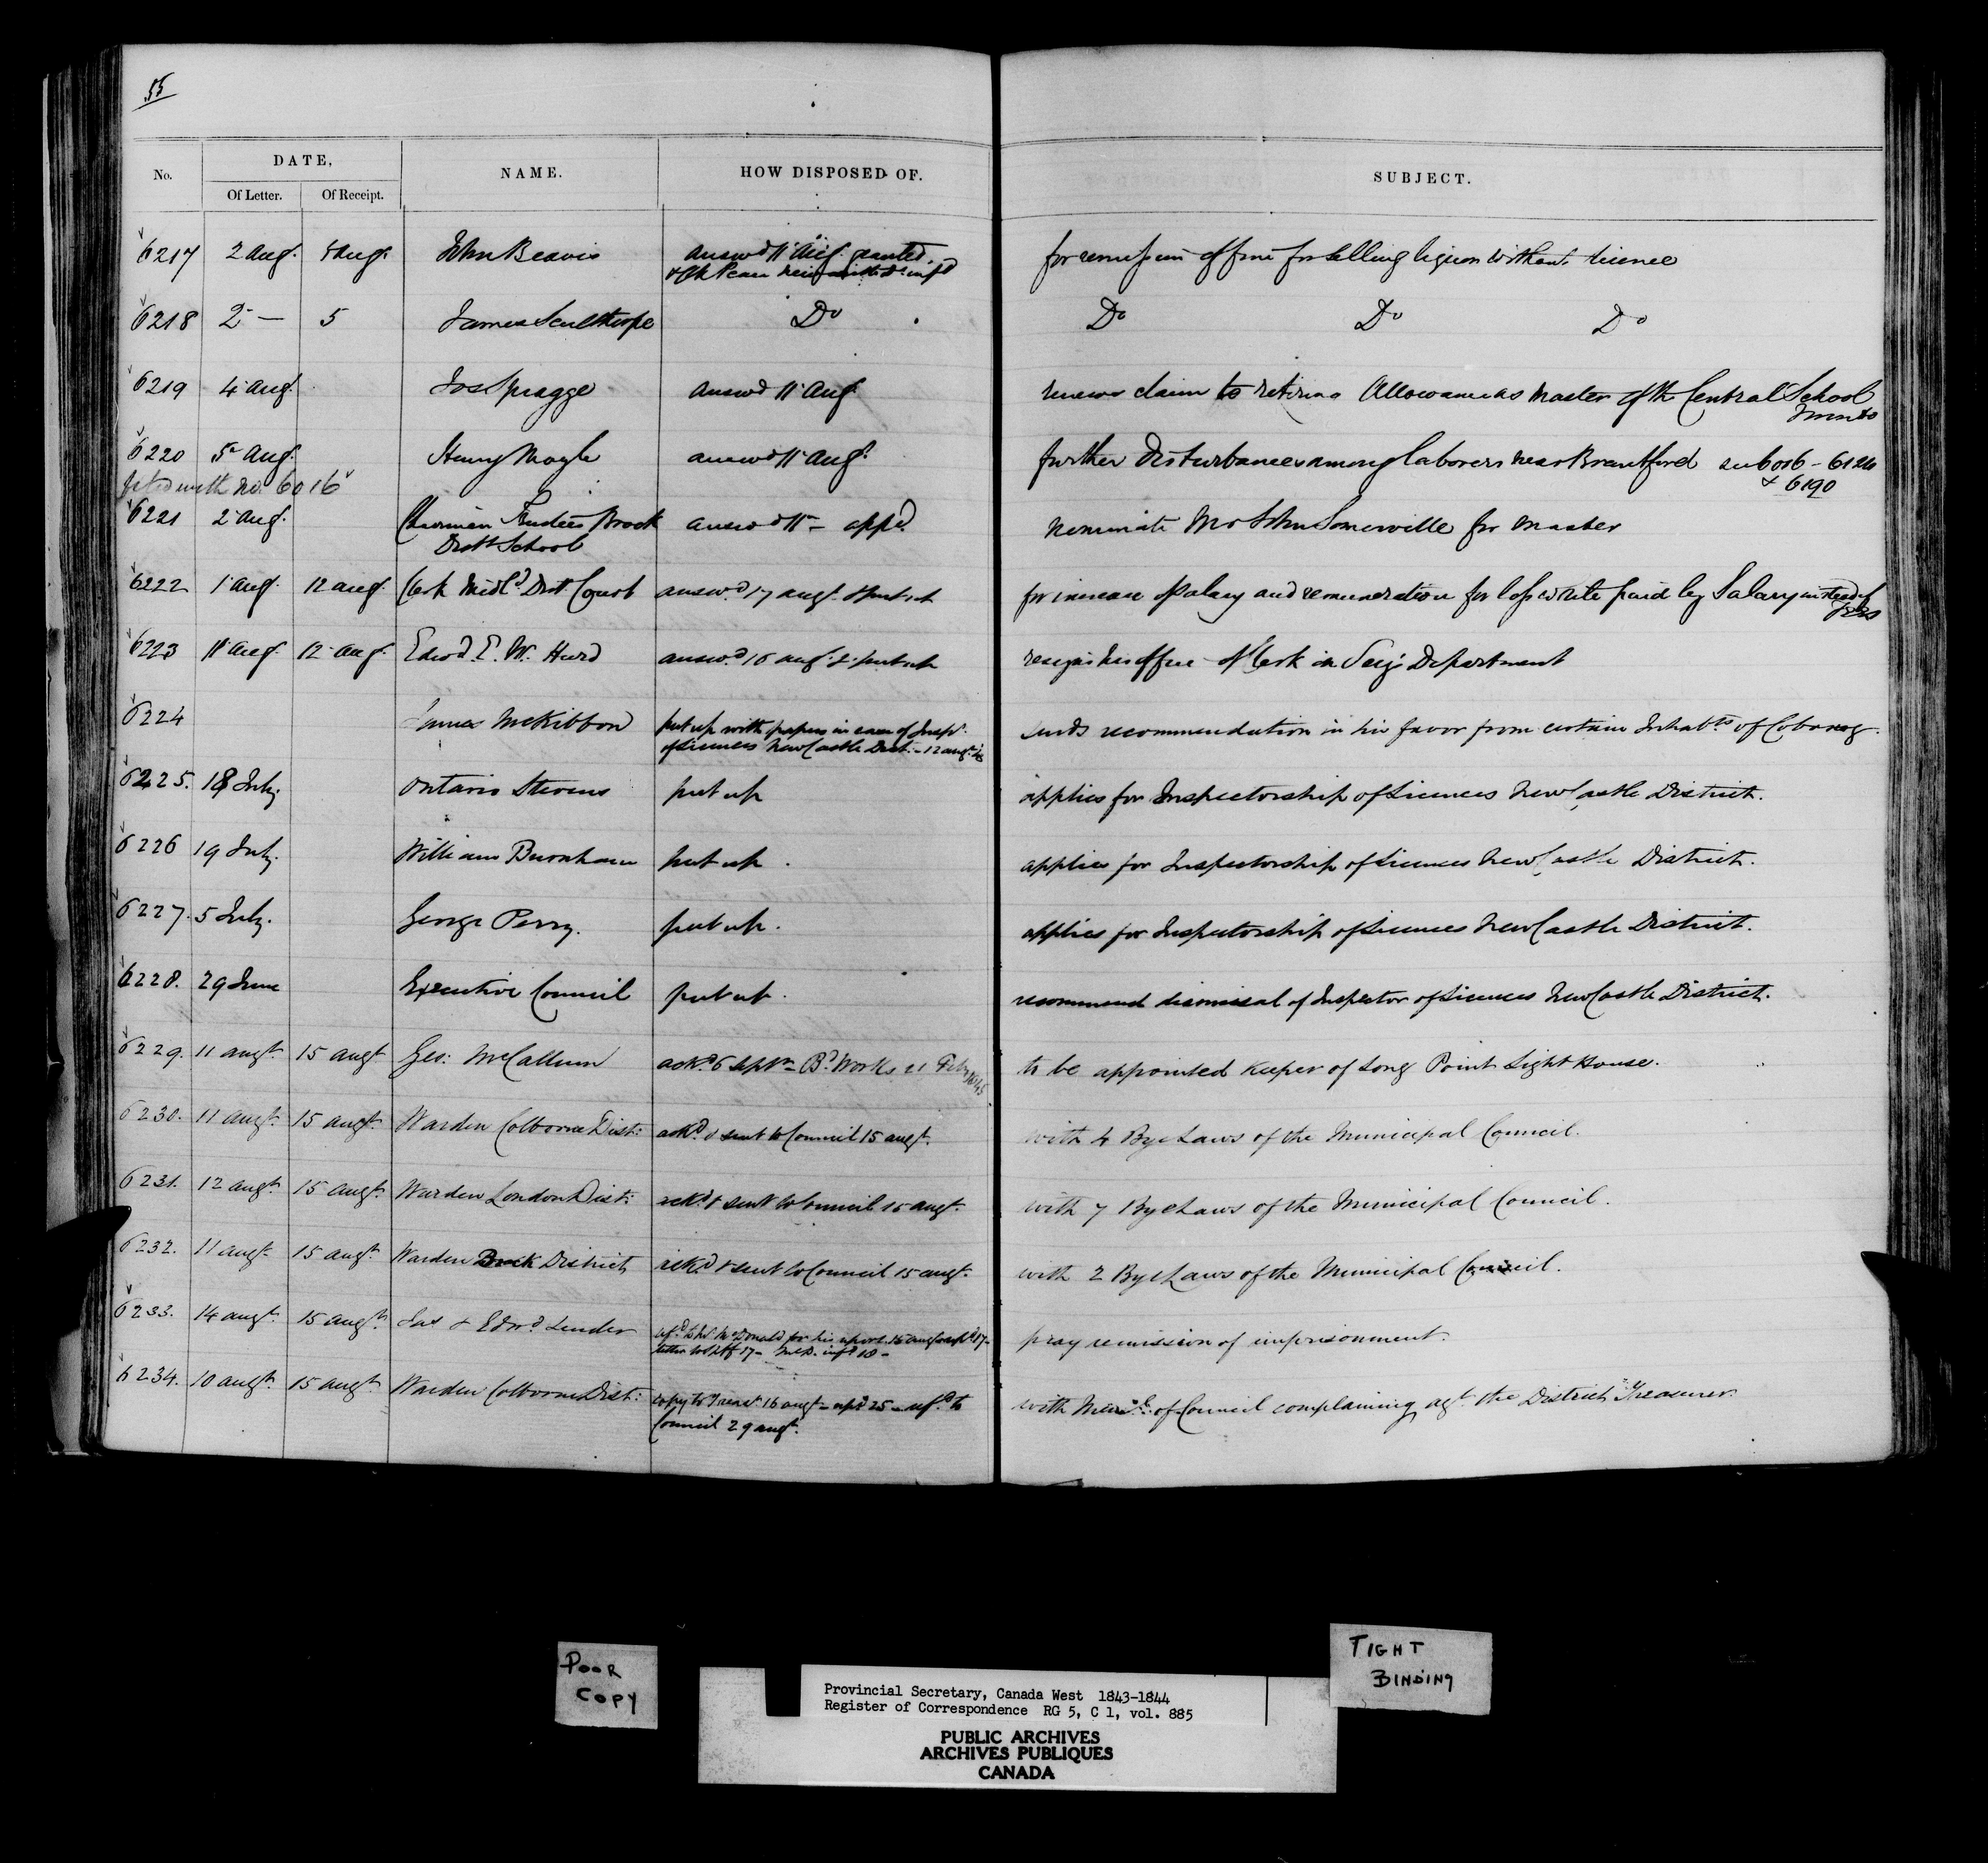 55
No.
DATE,
NAME.
HOW DISPOSED OF.
SUBJECT.
Of Letter. Of Receipt.
6217 2 Aug. 5 Aug. John Beavis answd 11 Aug. granted for remission of fine for selling liquor without licence
& Clk Peace infd
6218 2 — 5 James Sculthorpe Do Do Do Do
6219 4 Aug. Jos Spragge answd 11 Aug. renews claim to retiring Allowance as Master of the Central School
Toronto
6220 5 Aug. Henry Moyle answd 11 Aug. further Disturbances among laborers near Brantford see 6016 - 6124
& 6190
filed with No. 6016
6221 2 Aug. Chairman Trustees Brock answd 11 - appd nominate Mr John Somerville for Master
Distt School
6222 1 Aug. 12 Aug. Clerk Midld Distt Court answd 17 augt & put up for increase of salary and remuneration for loss while paid by Salary instead of
fees
6223 11 Aug. 12 Aug. Edwd E. W. Hurd answd 16 augt & put up resigns his office of Clerk in Secy's Department
6224 James McKibbon put up with papers in case of Inspr sends recommendation in his favor from certain Inhabts of Cobourg.
of Licences NewCastle Distt - 12 augt
6225. 18 July. Ontario Stevens put up applies for Inspectorship of Licences NewCastle District.
6226 19 July. William Burnham put up. applies for Inspectorship of Licences NewCastle District.
6227. 5 July. George Perry. put up. applies for Inspectorship of Licences NewCastle District.
6228. 29 June Executive Council put up. recommend dismissal of Inspector of Licences NewCastle District.
6229. 11 augt 15 augt Geo: McCallum ackd 6 Septr - Bd Works 21 Feby 1845 to be appointed Keeper of Long Point Light House.
6230. 11 augt 15 augt Warden Colborne Dist: ackd & sent to Council 15 augt. with 4 Bye Laws of the Municipal Council.
6231. 12 augt 15 augt Warden London Dist: ackd & sent to Council 15 augt. with 7 Bye Laws of the Municipal Council.
6232. 11 augt 15 augt Warden Brock District ackd & sent to Council 15 augt. with 2 Bye Laws of the Municipal Council.
6233. 14 augt 15 augt Jas & Edwd Lender refd to McDonald for his report. 16 augt repd 17 - pray remission of imprisonment.
letter to Shff 17 - infd 18 -
6234. 10 augt 15 augt Warden Colborne Dist: copy to Treasr 16 augt - repd 25 - refd to with Meml of Council complaining agt the District Treasurer
Council 29 augt.
POOR
COPY
TIGHT
BINDING
Provincial Secretary, Canada West 1843-1844
Register of Correspondence RG 5, C 1, vol. 885
PUBLIC ARCHIVES
ARCHIVES PUBLIQUES
CANADA